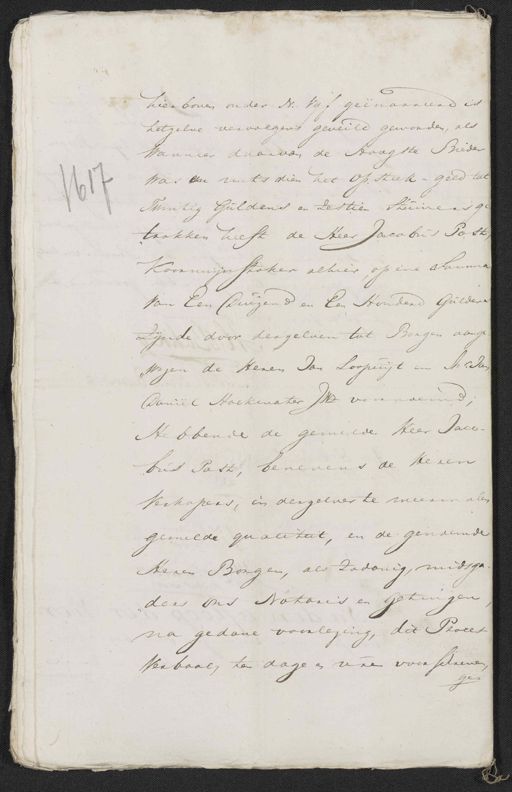 hierboven onder N. Vijf geëmaneerd is
hetzelve vervolgens geveild geworden, als
Wanneer daarvan de Hoogste Bieder
was en mits dien het opsteek-geld tot
Twintig Guldens en Zestien Stuivers ge
trokken heeft de Heer Jacobus Post,
Koornwijnstoker alhier, op eene Somma
van Een Duizend en Een Honderd Guldens
Zijnde door dezgelven tot Borgen aange
wezen de Heren Jan Loopuijt en Mr Jan
Daniël Hoekwater voornoemd;
1617
Hebbende de gemelde Heer Jaco-
bus Post, benevens de Heren
Verkopers, in derzelver te meermalen
gemelde qualiteit, en de genoemde
Heren Borgen, als Zodanig, midsga-
ders ons Notaris en getuigen,
na gedane voorlezing, dit Proces
Verbaal, ten dage en ure voorschreven,
ge